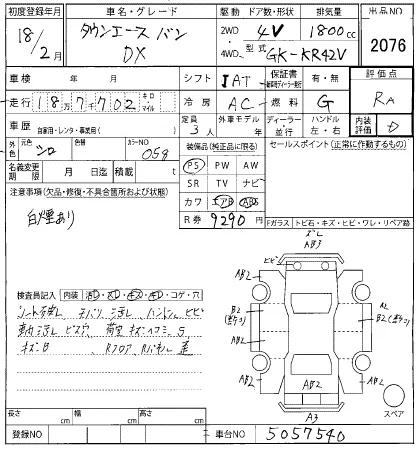 初度登録年月 車名・グレード 駆動 ドア数・形状 排気量 出品NO
18/2月 タウンエース バン DX 2WD 4V 1800cc 2076
4WD 型式 GK-KR42V
車検 年 月 シフト IAT 保証書 有・無 評価点
走行 18万7千702 キロ マイル 冷房 AC 燃料 G RA
車歴 自家用・レンタ・事業用( ) 定員 3人 外車モデル 年 ディーラー 並行 ハンドル 左・右 内装評価 D
外色 元色 シロ 色替 カラーNO 058 装備品(純正品に限る) セールスポイント(正常に作動するもの)
名義変更期限 月 日迄 積載 t PS PW AW
注意事項(欠品・修復・不具合箇所および状態) SR TV ナビ
白煙あり カワ エアB ABS
R券 9290円 Fガラス トビ石・キズ・ヒビ・ワレ・リペア跡
ズレ
AB3
ヒビ
AB2
AB2
検査員記入 内装 コゲ・穴
B2
A2
B2
ハンドル ヒビ
ビス穴 荷室 キズ ヘコミ S
キズB Rフロア Rパネル 歪
AB2
AB2
AB2
A3
スペア
長さ cm 幅 cm 高さ cm
登録NO 車台NO 5057540